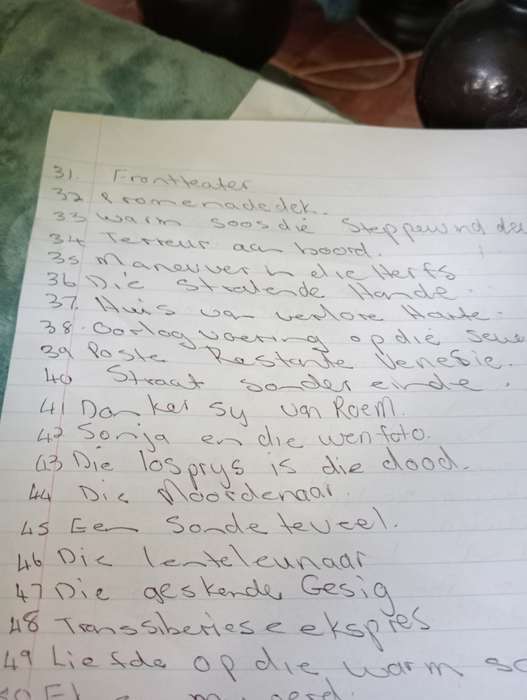 31. Frontteater
32 Promenadedek.
33 Warm soos die Steppewind
34 Terreur aan boord.
35 Maneuver in die Herfs
36 Die Stralende Hande.
37. Huis van verlore Harte.
38. Oorlogvoering op die
39 Poste Restante Venesie.
40 Straat sonder einde.
41 Donker sy van Roem.
42 Sonja en die wenfoto.
43 Die losprys is die dood.
44 Die Moordenaar.
45 Een Sonde teveel.
46 Die lenteleunaar
47 Die geskende Gesig
48 Transsiberiese ekspres
49 Liefde op die warm